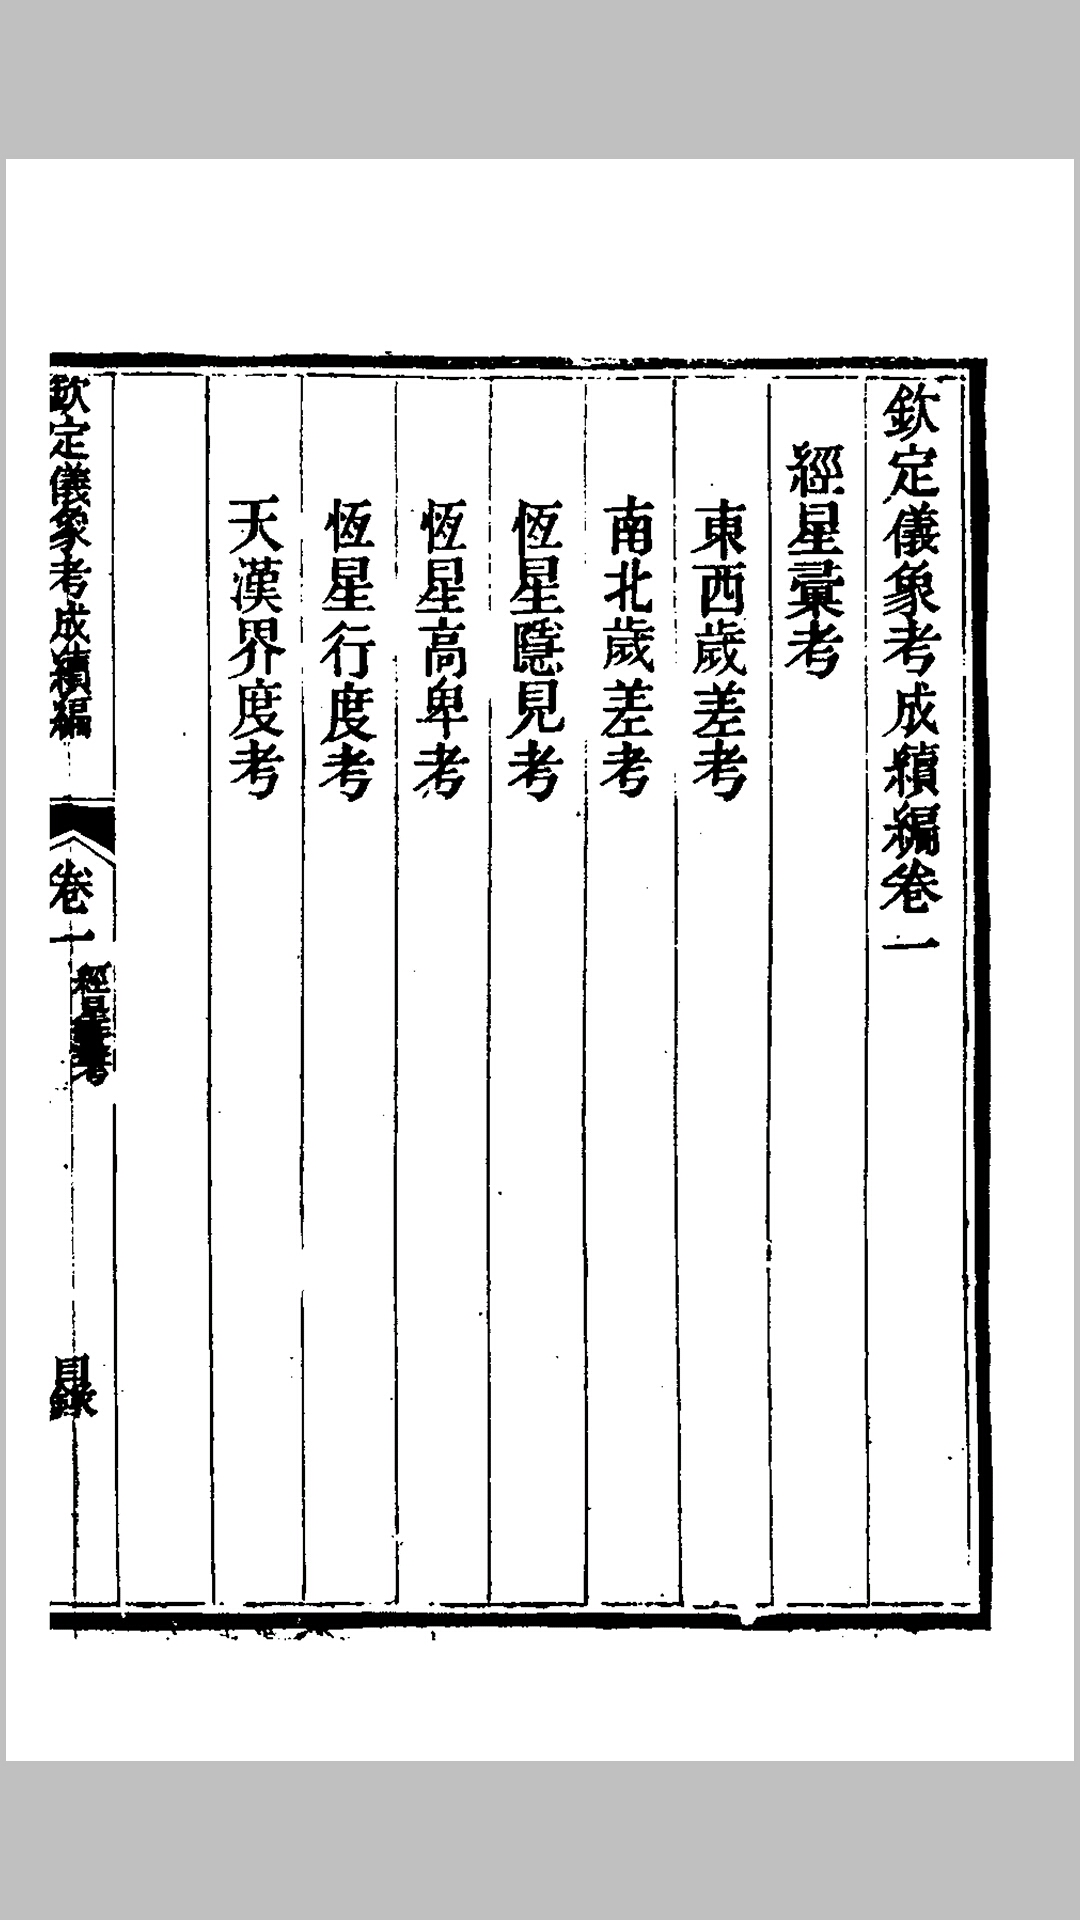 欽定儀象考成續編卷一
經星彙考
東西歲差考
南北歲差考
恆星隱見考
恆星高卑考
恆星行度考
天漢界度考
欽定儀象考成續編
卷一
經星彙考
目錄